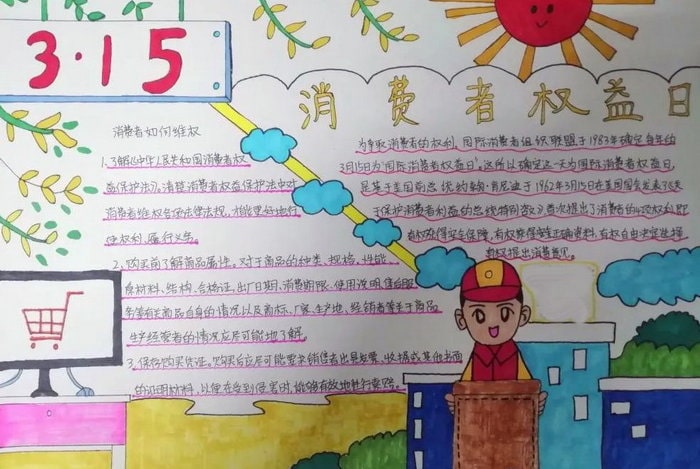 3·15
消费者权益日
消费者如何维权
1.了解《中华人民共和国消费者权
益保护法》。清楚消费者权益保护法中对
消费者维权的法律法规，才能更好地行
使权利、履行义务。
2.购买前了解商品属性。对于商品的种类、规格、性能、
原材料、结构、合格证、出厂日期、消费期限、使用说明、售后服
务等有关商品自身的情况以及商标、厂家、生产地、经销者等关于商品
生产经营者的情况应尽可能地了解。
3.保存购买凭证。购买后应尽可能要求销售者出具发票、收据或其他书面
的证明材料，以便在受到侵害时，能够有效地进行索赔。
为争取消费者的权利，国际消费者组织联盟于1983年确定每年的
3月15日为"国际消费者权益日"。之所以确定这一天为国际消费者权益日，
是基于美国前总统约翰·肯尼迪于1962年3月15日在美国国会发表《关
于保护消费者利益的总统特别咨文》，首次提出了消费者的四项权利，即
有权获得安全保障，有权获得正确资料，有权自由决定选择，
有权提出消费意见。